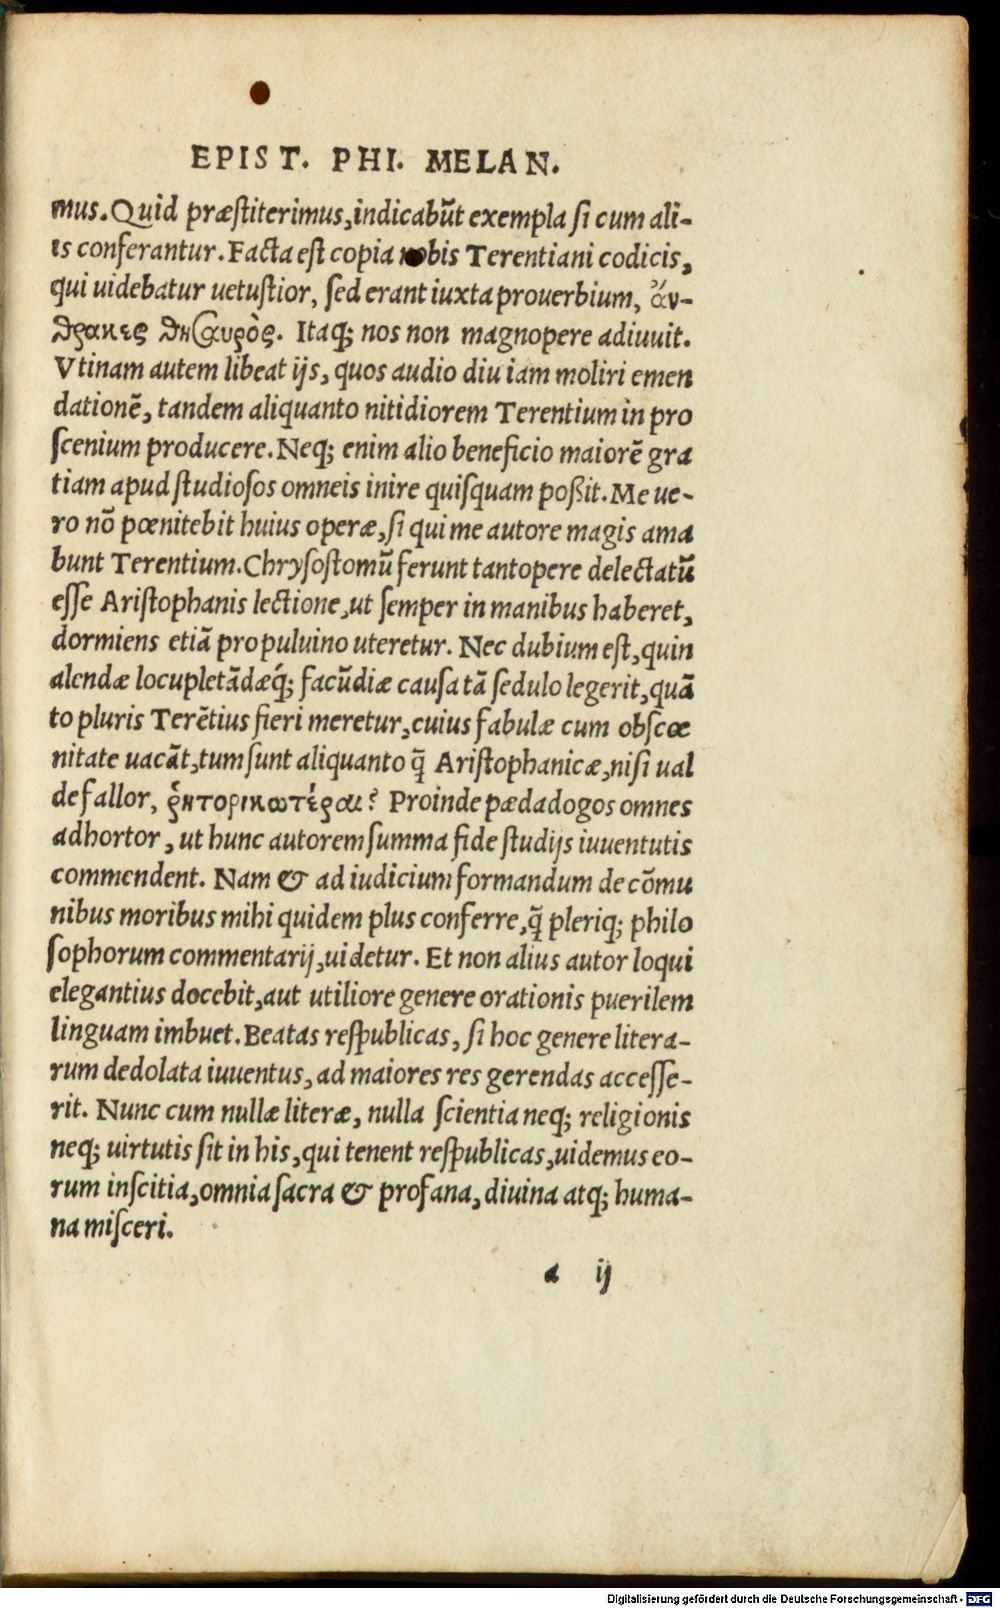 EPIST. PHI. MELAN.
mus. Quid præſtiterimus, indicabũt exempla ſi cum ali-
is conferantur. Facta eſt copia nobis Terentiani codicis,
qui uidebatur uetuſtior, ſed erant iuxta prouerbium, ἄν-
θρακες θησαυρὸς. Itaq; nos non magnopere adiuuit.
Vtinam autem libeat ijs, quos audio diu iam moliri emen
dationẽ, tandem aliquanto nitidiorem Terentium in pro
ſcenium producere. Neq; enim alio beneficio maiorẽ gra
tiam apud ſtudioſos omneis inire quiſquam poßit. Me ue-
ro nõ pœnitebit huius operæ, ſi qui me autore magis ama
bunt Terentium. Chryſoſtomũ ferunt tantopere delectatũ
eſſe Ariſtophanis lectione, ut ſemper in manibus haberet,
dormiens etiã pro puluino uteretur. Nec dubium eſt, quin
alendæ locupletãdæq́; facũdiæ cauſa tã ſedulo legerit, quã
to pluris Terẽtius fieri meretur, cuius fabulæ cum obſcœ
nitate uacãt, tum ſunt aliquanto q̃ Ariſtophanicæ, niſi ual
de fallor, ῥητορικωτέραι? Proinde pædadogos omnes
adhortor, ut hunc autorem ſumma fide ſtudijs iuuentutis
commendent. Nam & ad iudicium formandum de cõmu
nibus moribus mihi quidem plus conferre, q̃ pleriq; philo
ſophorum commentarij, uidetur. Et non alius autor loqui
elegantius docebit, aut utiliore genere orationis puerilem
linguam imbuet. Beatas reſpublicas, ſi hoc genere litera-
rum dedolata iuuentus, ad maiores res gerendas acceſſe-
rit. Nunc cum nullæ literæ, nulla ſcientia neq; religionis
neq; uirtutis ſit in his, qui tenent reſpublicas, uidemus eo-
rum inſcitia, omnia ſacra & profana, diuina atq; huma-
na miſceri.
a ij
Digitalisierung gefördert durch die Deutsche Forschungsgemeinschaft - DFG